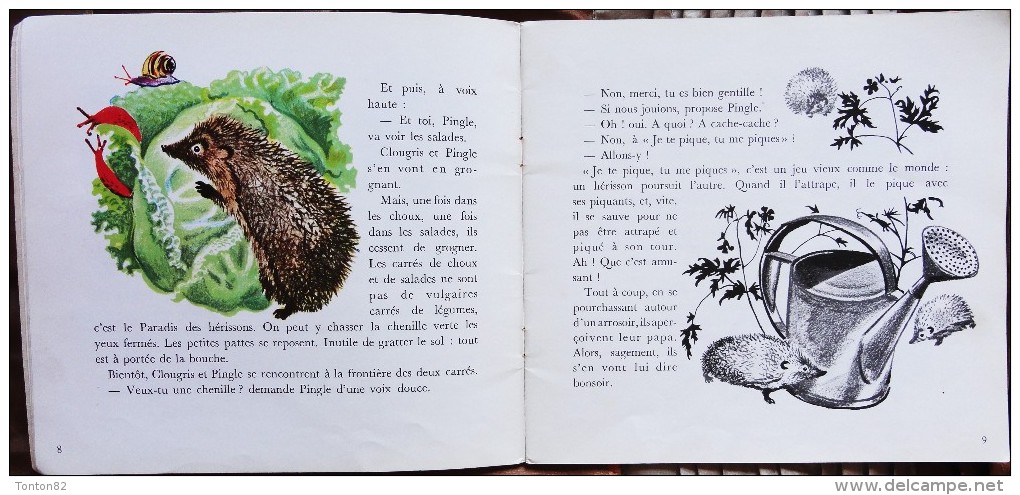 Et puis, à voix
haute :
— Et toi, Pingle,
va voir les salades.
Clougris et Pingle
s'en vont en gro-
gnant.
Mais, une fois dans
les choux, une fois
dans les salades, ils
cessent de grogner.
Les carrés de choux
et de salades ne sont
pas de vulgaires
carrés de légumes,
c'est le Paradis des hérissons. On peut y chasser la chenille verte les
yeux fermés. Les petites pattes se reposent. Inutile de gratter le sol : tout
est à portée de la bouche.
Bientôt, Clougris et Pingle se rencontrent à la frontière des deux carrés.
— Veux-tu une chenille ? demande Pingle d'une voix douce.
8
— Non, merci, tu es bien gentille !
— Si nous jouions, propose Pingle.
— Oh ! oui. A quoi ? A cache-cache ?
— Non, à « Je te pique, tu me piques » !
— Allons-y !
« Je te pique, tu me piques », c'est un jeu vieux comme le monde :
un hérisson poursuit l'autre. Quand il l'attrape, il le pique avec
ses piquants, et, vite,
il se sauve pour ne
pas être attrapé et
piqué à son tour.
Ah ! Que c'est amu-
sant !
Tout à coup, en se
pourchassant autour
d'un arrosoir, ils aper-
çoivent leur papa.
Alors, sagement, ils
s'en vont lui dire
bonsoir.
9
Tonton82
delcampe.net